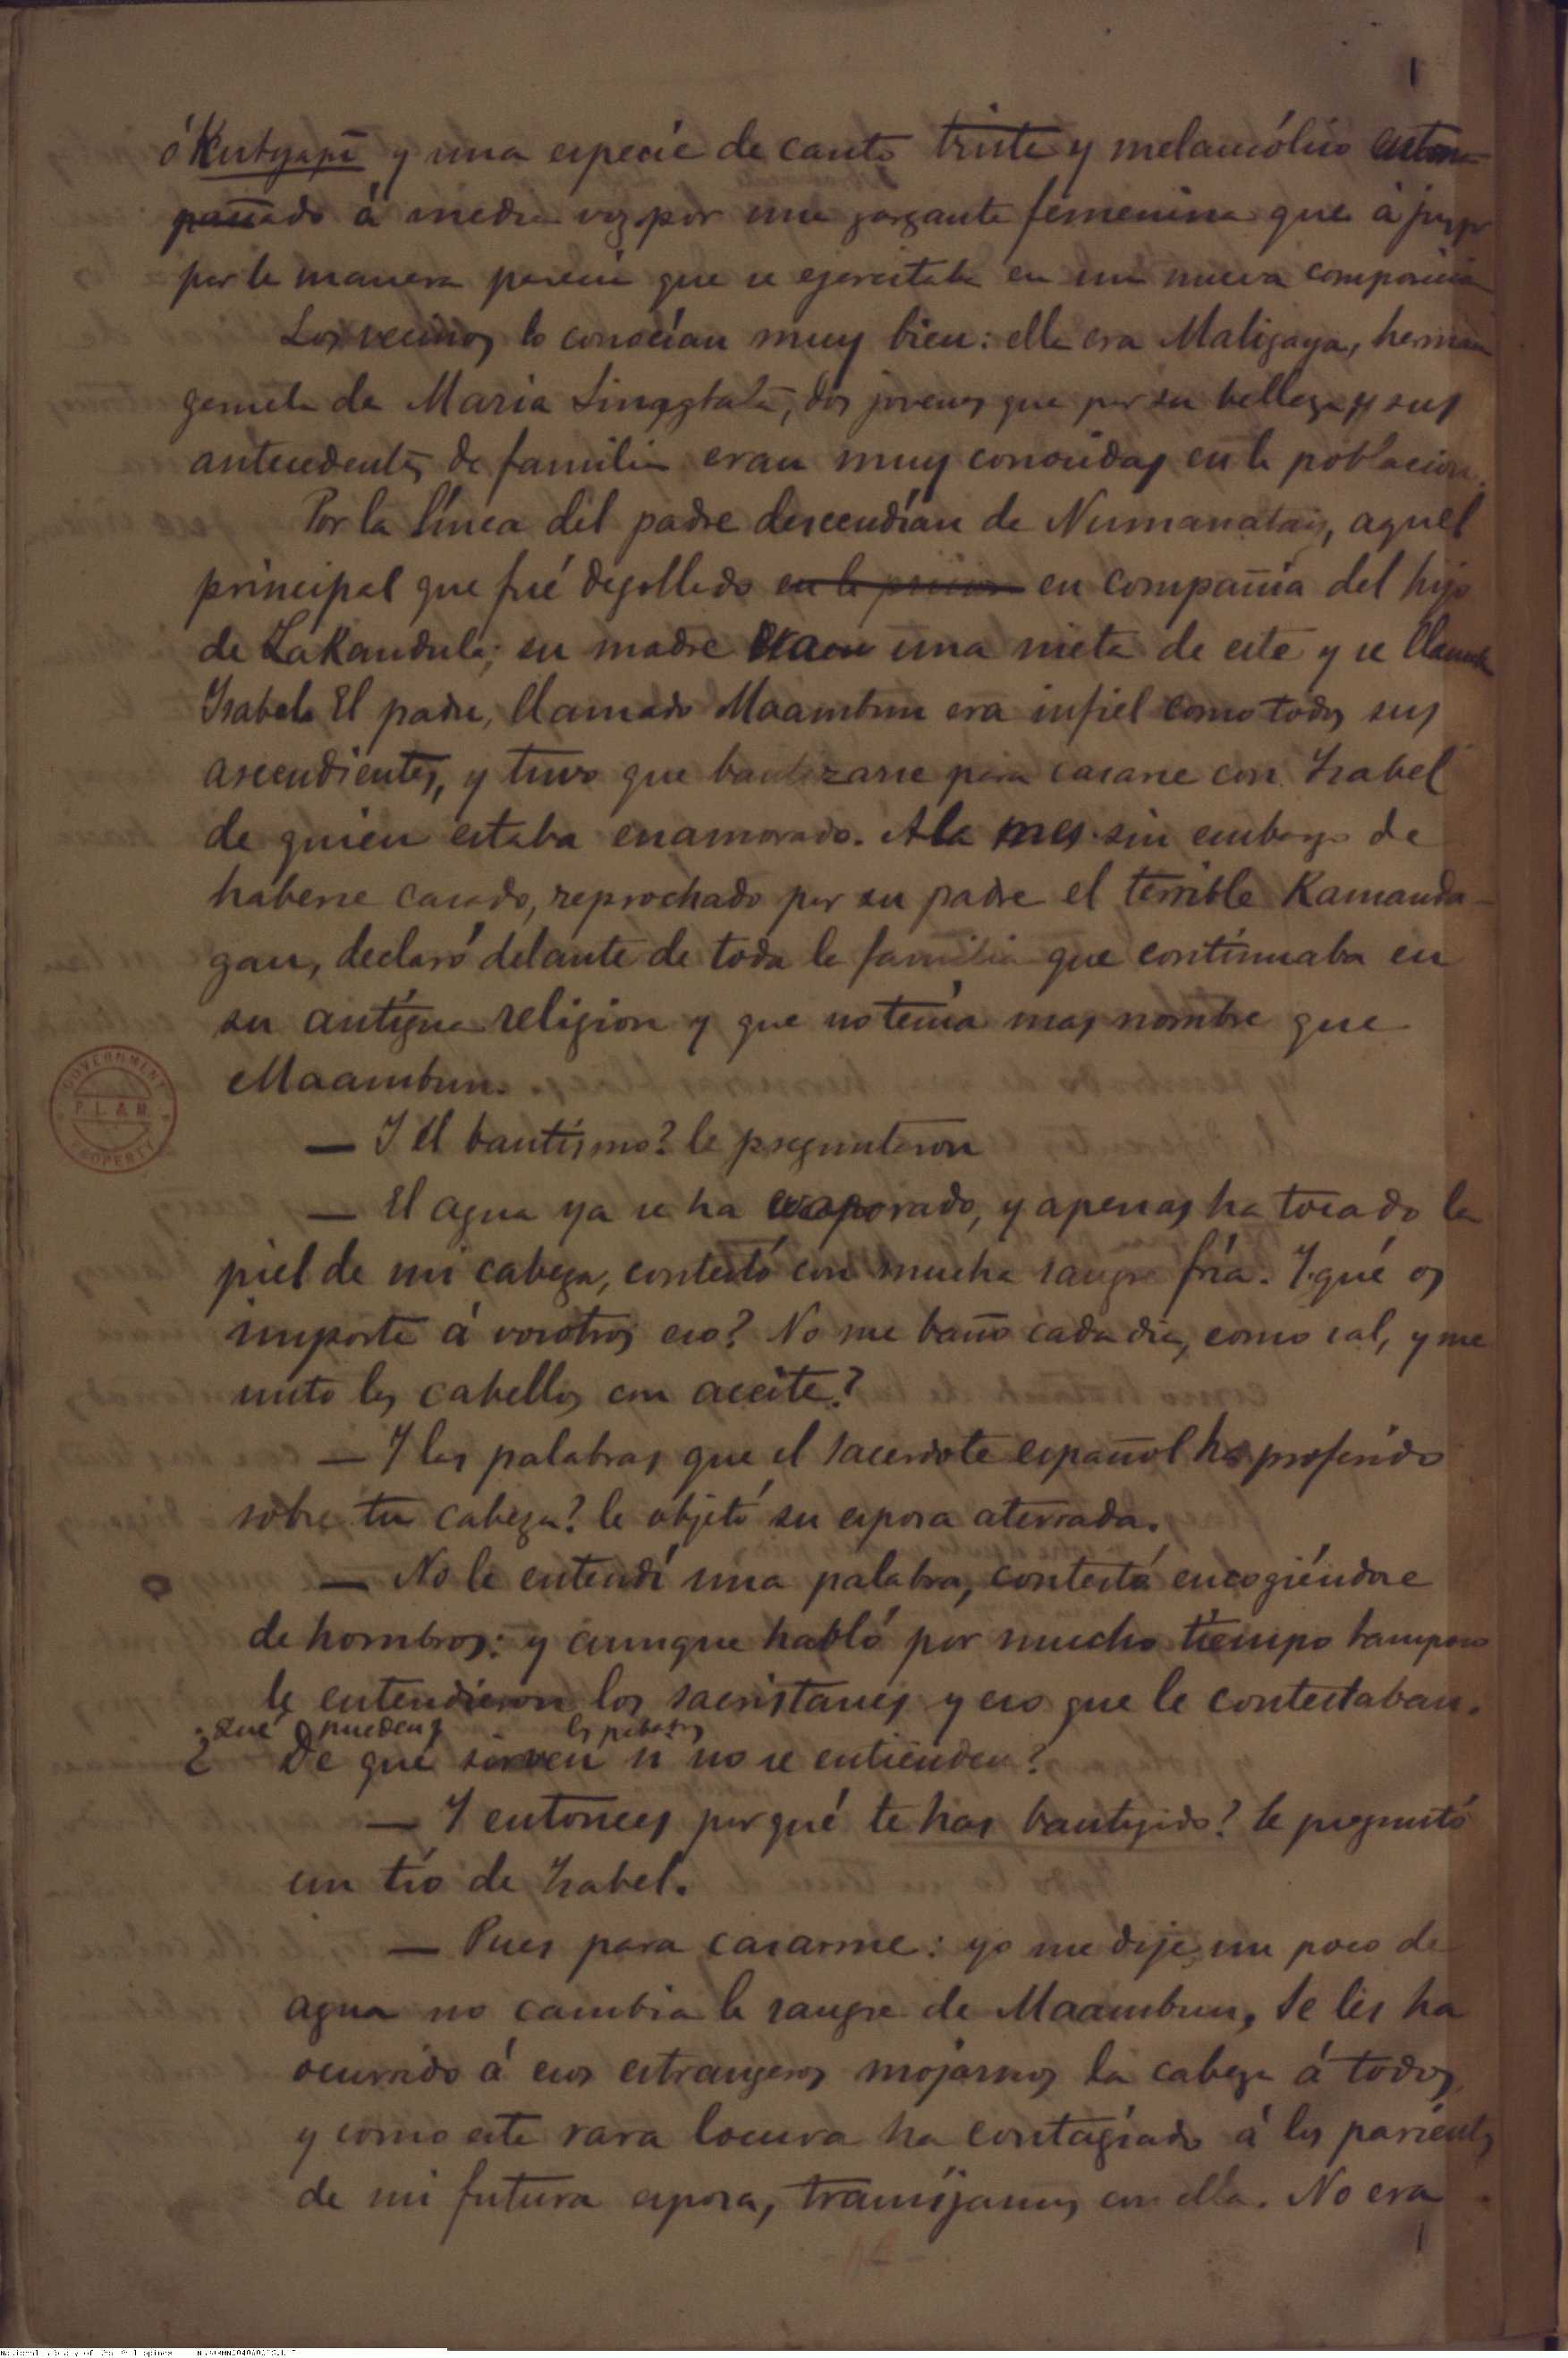 1
ó Kutyapì y una especie de canto triste y melancólico
á media voz por una garganta femenina que á juzgar
por la manera parecia que se ejercitaba en una nueva composicion
Los vecinos lo conocían muy bien: ella era Maligaya, hermana
gemela de Maria Sinagtala, dos jovenes que por su belleza y sus
antecedentes de familia eran muy conocidas en la poblacion.
Por la línea del padre descendían de Numanatay, aquel
principal que fué degollado en la prision en compañía del hijo
de Lakandula; su madre era una nieta de este y se llamaba
Isabel. El padre, llamado Maambun era infiel como todos sus
ascendientes, y tuvo que bautizarse para casarse con Isabel
de quien estaba enamorado. A la mes sin embargo de
haberse casado, reprochado por su padre el terrible Kamanda-
gan, declaró delante de toda la familia que continuaba en
su antigua religion y que no tenía mas nombre que
Maambun.
— Y el bautismo? le preguntaron
— El agua ya se ha evaporado, y apenas ha tocado la
piel de mi cabeza, contestó con mucha sangre fría. Y qué os
importa á vosotros eso? No me baño cada dia, como sal, y me
unto los cabellos con aceite?
— Y las palabras que el sacerdote español ha proferido
sobre tu cabeza? le objetó su esposa aterrada.
— No le entendí una palabra, contestó encogiéndose
de hombros: y aunque habló por mucho tiempo tampoco
le entendieron los sacristanes y eso que le contestaban.
¿Qué pueden
¿ De que sirven si no se entienden?
— Y entonces por qué te has bautizado? le preguntó
un tío de Isabel.
— Pues para casarme: yo me dije, un poco de
agua no cambia la sangre de Maambun, Se les ha
ocurrido á esos estrangeros mojarnos la cabeza á todos,
y como esta rara locura ha contagiado á los parientes
de mi futura esposa, transijamos con ella. No era
GOVERNMENT
P.L. & M.
PROPERTY
National Library of the Philippines